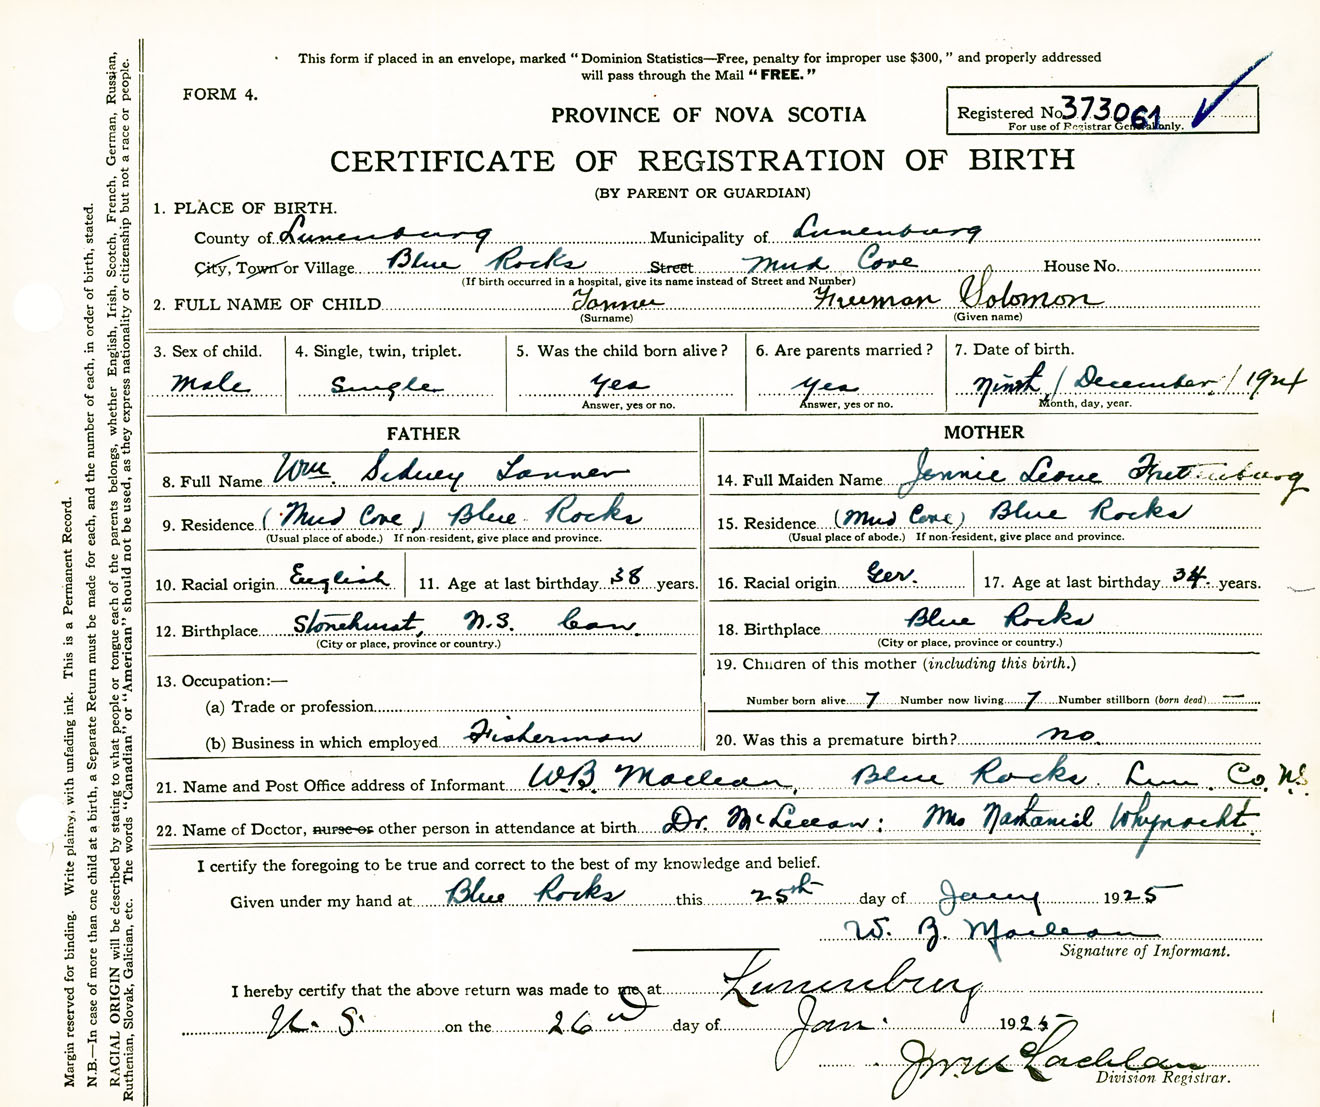 This form if placed in an envelope, marked “Dominion Statistics—Free, penalty for improper use $300,” and properly addressed
will pass through the Mail “FREE.”
FORM 4.
PROVINCE OF NOVA SCOTIA
Registered No. 373061
For use of Registrar General only.
CERTIFICATE OF REGISTRATION OF BIRTH
(BY PARENT OR GUARDIAN)
1. PLACE OF BIRTH.
County of Lunenburg Municipality of Lunenburg
City, Town or Village Blue Rocks Street Mud Cove House No.
(If birth occurred in a hospital, give its name instead of Street and Number)
2. FULL NAME OF CHILD Tanner Freeman Solomon
(Surname) (Given name)
3. Sex of child. 4. Single, twin, triplet. 5. Was the child born alive? 6. Are parents married? 7. Date of birth.
Male Single Yes Yes Ninth / December / 1924
Answer, yes or no. Answer, yes or no. Month, day, year.
FATHER MOTHER
8. Full Name Wm. Sidney Tanner 14. Full Maiden Name Jennie Leone
9. Residence (Mud Cove) Blue Rocks 15. Residence (Mud Cove) Blue Rocks
(Usual place of abode.) If non-resident, give place and province. (Usual place of abode.) If non-resident, give place and province.
10. Racial origin English 11. Age at last birthday 38 years. 16. Racial origin Ger. 17. Age at last birthday 34 years.
12. Birthplace Stonehurst, N.S. Can. 18. Birthplace Blue Rocks
(City or place, province or country.) (City or place, province or country.)
13. Occupation:— 19. Children of this mother (including this birth.)
(a) Trade or profession Number born alive 7 Number now living 7 Number stillborn (born dead) —
(b) Business in which employed Fisherman 20. Was this a premature birth? no.
21. Name and Post Office address of Informant W.B. Maclean, Blue Rocks. Lun. Co. N.S.
22. Name of Doctor, nurse or other person in attendance at birth Dr. McLellan: Mrs Nathaniel Whynacht.
I certify the foregoing to be true and correct to the best of my knowledge and belief.
Given under my hand at Blue Rocks this 25th day of Jany 1925
W. B. Maclean
Signature of Informant.
I hereby certify that the above return was made to me at Lunenburg
N. S. on the 26 day of Jan. 1925
Division Registrar.
Margin reserved for binding. Write plainly, with unfading ink. This is a Permanent Record.
N.B.—In case of more than one child at a birth, a Separate Return must be made for each, and the number of each, in order of birth, stated.
RACIAL ORIGIN will be described by stating to what people or tongue each of the parents belongs, whether English, Irish, Scotch, French, German, Russian,
Ruthenian, Slovak, Galician, etc. The words “Canadian” or “American” should not be used, as they express nationality or citizenship but not a race or people.